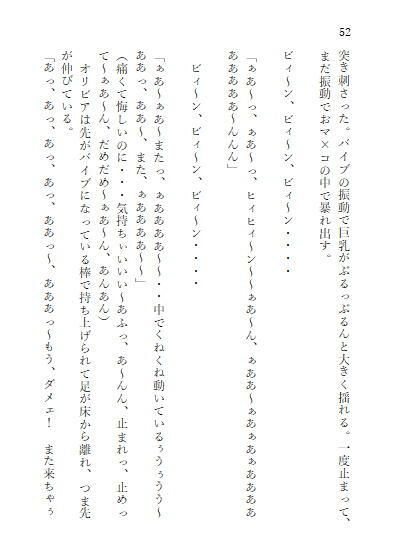 52
突き刺さった。バイブの振動で巨乳がぶるっぶるんと大きく揺れる。一度止まって、
まだ振動でおマ×コの中で暴れ出す。
ビィ～ン、ビィ～ン、ビィ～ン・・・・
「ぁあ～っ、ぁあ～っ、ヒィヒィ～ン～～ぁあ～ん、ぁああ～ぁあぁあぁああああ
ああああ～んんん」
ビィ～ン、ビィ～ン、ビィ～ン・・・・
「ぁあ～ぁあ～またっ、ぁああああ～～・・中でくねくね動いているぅうぅうう～
ああっ、ああ～、また、ぁああああ～～」
（痛くて悔しいのに・・・気持ちぃいいい～あふっ、あ～んん、止まれっ、止めっ
て～ぁあ～ん、だめだめ～ぁあ～ん、あんあん）
オリビアは先がバイブになっている棒で持ち上げられて足が床から離れ、つま先
が伸びている。
「あっ、あっ、あっ、あっ、ああっ～、あああっ～もう、ダメェ！　また来ちゃぅ